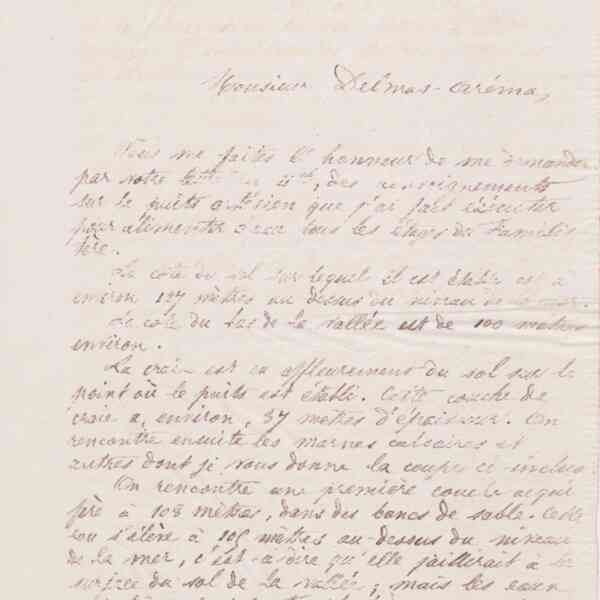 Monsieur Delmas-Azéma,
Vous me faites l'honneur de me demander
par votre lettre du 11 ct, des renseignements
sur le puits artésien que j'ai fait exécuter
pour alimenter d'eau tous les étages du Familis-
tère.
La cote du sol sur lequel il est établi est à
environ 127 mètres au dessus du niveau de la mer.
La cote du bas de la vallée est de 100 mètres
environ.
La craie est en affleurement du sol sur le
point où le puits est établi. Cette couche de
craie a, environ, 37 mètres d'épaisseur. On
rencontre ensuite les marnes calcaires et
autres dont je vous donne la coupe ci-incluse
On rencontre une première couche aqui-
fère à 108 mètres, dans des bancs de sable. Cette
eau s'élève à 105 mètres au-dessus du niveau
de la mer, c'est-à-dire qu'elle jaillirait à la
surface du sol de la vallée; mais les eaux